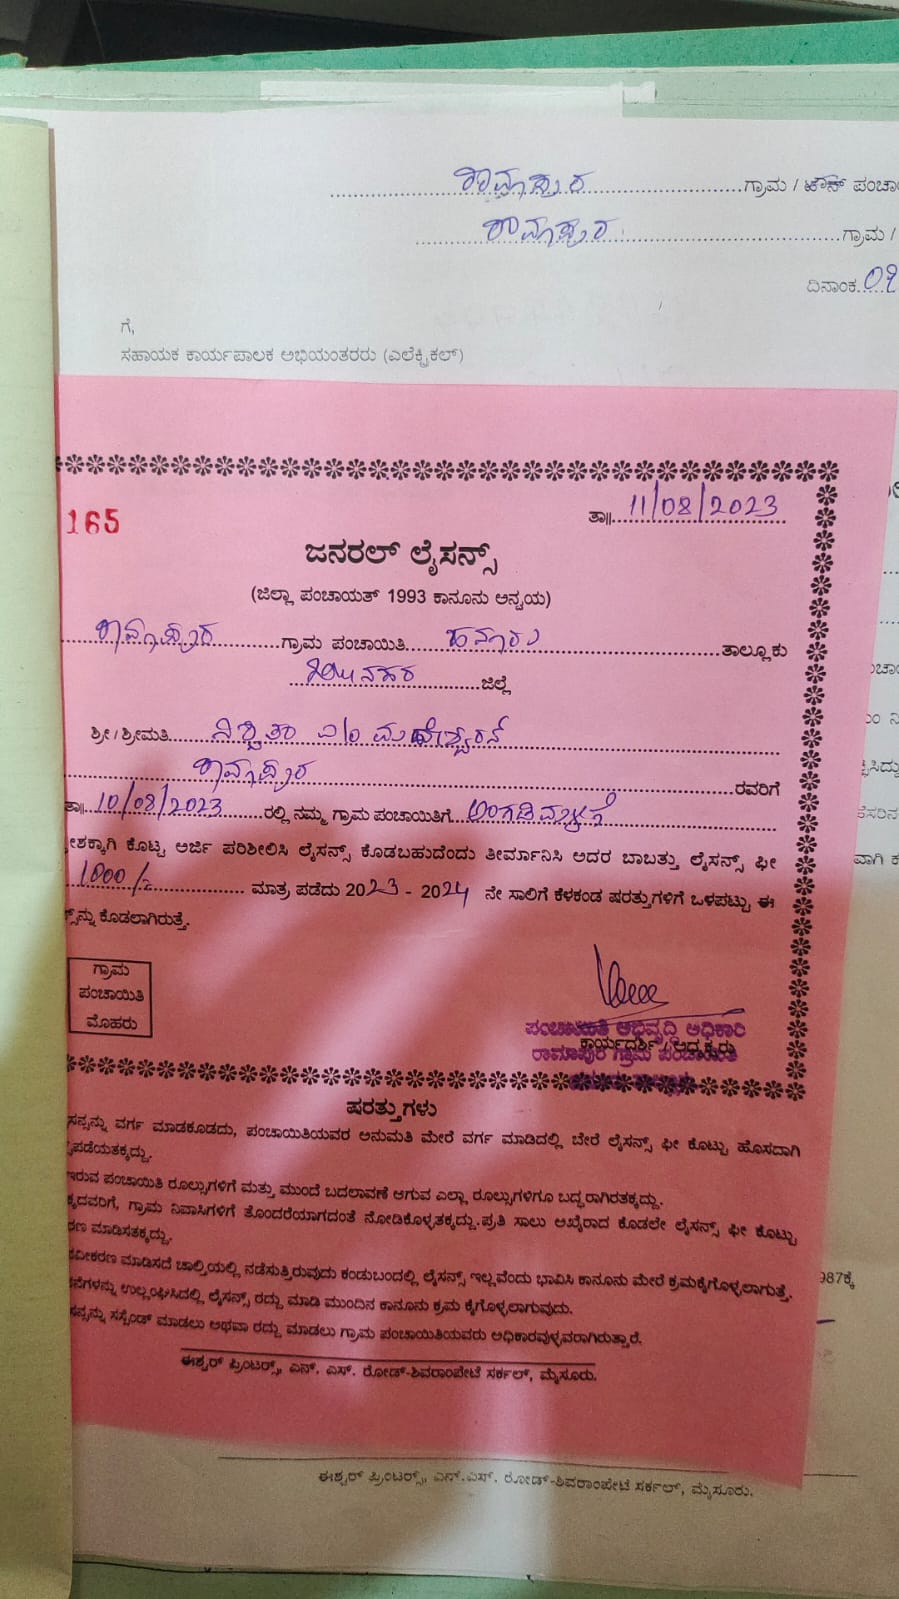 ರಾಮಾಪುರ ಗ್ರಾಮ / ಟೌನ್ ಪಂಚಾ
ರಾಮಾಪುರ ಗ್ರಾಮ /
ದಿನಾಂಕ.....09
ಗೆ,
ಸಹಾಯಕ ಕಾರ್ಯಪಾಲಕ ಅಭಿಯಂತರರು (ಎಲೆಕ್ಟ್ರಿಕಲ್)
165
ತಾ॥ 11/08/2023
ಜನರಲ್ ಲೈಸನ್ಸ್
(ಜಿಲ್ಲಾ ಪಂಚಾಯತ್ 1993 ಕಾನೂನು ಅನ್ವಯ)
ರಾಮಾಪುರ ಗ್ರಾಮ ಪಂಚಾಯಿತಿ ಹನೂರು ತಾಲ್ಲೂಕು
ಚಾ॥ನಗರ ಜಿಲ್ಲೆ
ಶ್ರೀ / ಶ್ರೀಮತಿ ನಿಶ್ಚಿತಾ ಮಹೇಶ್ವರನ್
ರಾಮಾಪುರ ರವರಿಗೆ
ತಾ॥ 10/08/2023 ರಲ್ಲಿ ನಮ್ಮ ಗ್ರಾಮ ಪಂಚಾಯಿತಿಗೆ ಅಂಗಡಿ ಮಳಿಗೆ
ೇಶಕ್ಕಾಗಿ ಕೊಟ್ಟ ಅರ್ಜಿ ಪರಿಶೀಲಿಸಿ ಲೈಸನ್ಸ್ ಕೊಡಬಹುದೆಂದು ತೀರ್ಮಾನಿಸಿ ಅದರ ಬಾಬತ್ತು ಲೈಸನ್ಸ್ ಫೀ
1000/- ಮಾತ್ರ ಪಡೆದು 2023 - 2024 ನೇ ಸಾಲಿಗೆ ಕೆಳಕಂಡ ಷರತ್ತುಗಳಿಗೆ ಒಳಪಟ್ಟು ಈ
ಸ್ಸನ್ನು ಕೊಡಲಾಗಿರುತ್ತೆ.
ಗ್ರಾಮ
ಪಂಚಾಯಿತಿ
ಮೊಹರು
ಪಂಚಾಯಿತಿ ಅಭಿವೃದ್ಧಿ ಅಧಿಕಾರಿ
ಕಾರ್ಯದರ್ಶಿ / ಅಧ್ಯಕ್ಷರು
ರಾಮಾಪುರ ಗ್ರಾಮ ಪಂಚಾಯಿತಿ
ಷರತ್ತುಗಳು
ಸನ್ಸನ್ನು ವರ್ಗ ಮಾಡಕೂಡದು, ಪಂಚಾಯಿತಿಯವರ ಅನುಮತಿ ಮೇರೆ ವರ್ಗ ಮಾಡಿದಲ್ಲಿ ಬೇರೆ ಲೈಸನ್ಸ್ ಫೀ ಕೊಟ್ಟು ಹೊಸದಾಗಿ
ಪಡೆಯತಕ್ಕದ್ದು.
ಇರುವ ಪಂಚಾಯಿತಿ ರೂಲ್ಸುಗಳಿಗೆ ಮತ್ತು ಮುಂದೆ ಬದಲಾವಣೆ ಆಗುವ ಎಲ್ಲಾ ರೂಲ್ಸುಗಳಿಗೂ ಬದ್ಧರಾಗಿರತಕ್ಕದ್ದು.
ಕ್ಕದವರಿಗೆ, ಗ್ರಾಮ ನಿವಾಸಿಗಳಿಗೆ ತೊಂದರೆಯಾಗದಂತೆ ನೋಡಿಕೊಳ್ಳತಕ್ಕದ್ದು. ಪ್ರತಿ ಸಾಲು ಆಖೈರಾದ ಕೊಡಲೇ ಲೈಸನ್ಸ್ ಫೀ ಕೊಟ್ಟು
ರಣ ಮಾಡಿಸತಕ್ಕದ್ದು.
ನವೀಕರಣ ಮಾಡಿಸದೆ ಚಾಲ್ತಿಯಲ್ಲಿ ನಡೆಸುತ್ತಿರುವುದು ಕಂಡುಬಂದಲ್ಲಿ ಲೈಸನ್ಸ್ ಇಲ್ಲವೆಂದು ಭಾವಿಸಿ ಕಾನೂನು ಮೇರೆ ಕ್ರಮಕೈಗೊಳ್ಳಲಾಗುತ್ತೆ.
ನೆಗಳನ್ನು ಉಲ್ಲಂಘಿಸಿದಲ್ಲಿ ಲೈಸನ್ಸ್ ರದ್ದು ಮಾಡಿ ಮುಂದಿನ ಕಾನೂನು ಕ್ರಮ ಕೈಗೊಳ್ಳಲಾಗುವುದು.
ಸನ್ಸನ್ನು ಸಸ್ಪೆಂಡ್ ಮಾಡಲು ಅಥವಾ ರದ್ದು ಮಾಡಲು ಗ್ರಾಮ ಪಂಚಾಯಿತಿಯವರು ಅಧಿಕಾರವುಳ್ಳವರಾಗಿರುತ್ತಾರೆ.
987ಕ್ಕೆ
ಈಶ್ವರ್ ಪ್ರಿಂಟರ್ಸ್, ಎನ್. ಎಸ್. ರೋಡ್-ಶಿವರಾಂಪೇಟೆ ಸರ್ಕಲ್, ಮೈಸೂರು.
ಈಶ್ವರ್ ಪ್ರಿಂಟರ್ಸ್, ಎನ್.ಎಸ್. ರೋಡ್-ಶಿವರಾಂಪೇಟೆ ಸರ್ಕಲ್, ಮೈಸೂರು.